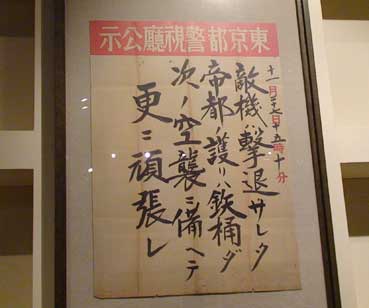 東京都警視廳公示
十一月三十七日十五時十分
敵機ハ撃退サレタ
帝都ノ護リハ鉄桶ダ
次ノ空襲ニ備ヘテ
更ニ頑張レ